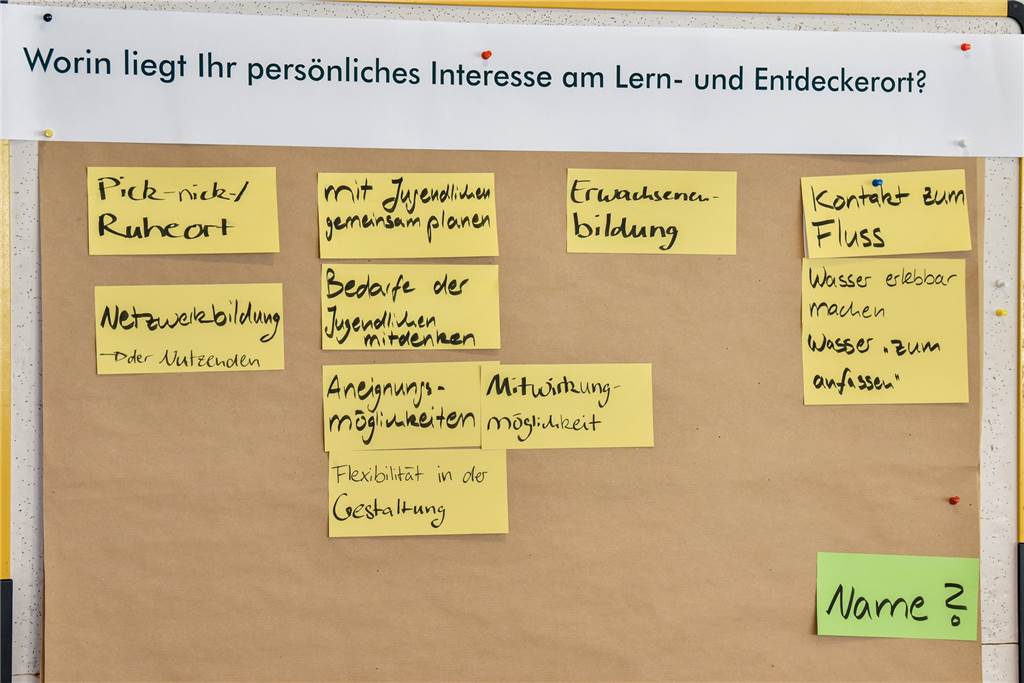 Worin liegt Ihr persönliches Interesse am Lern- und Entdeckerort?
Pick-nick-/
Ruheort
Netzwerkbildung
→ der Nutzenden
mit Jugendlichen
gemeinsam planen
Bedarfe der
Jugendlichen
mitdenken
Aneignungs-
möglichkeiten
Mitwirkung-
möglichkeit
Flexibilität in der
Gestaltung
Erwachsenen-
bildung
Kontakt zum
Fluss
Wasser erlebbar
machen
Wasser „zum
anfassen"
Name?